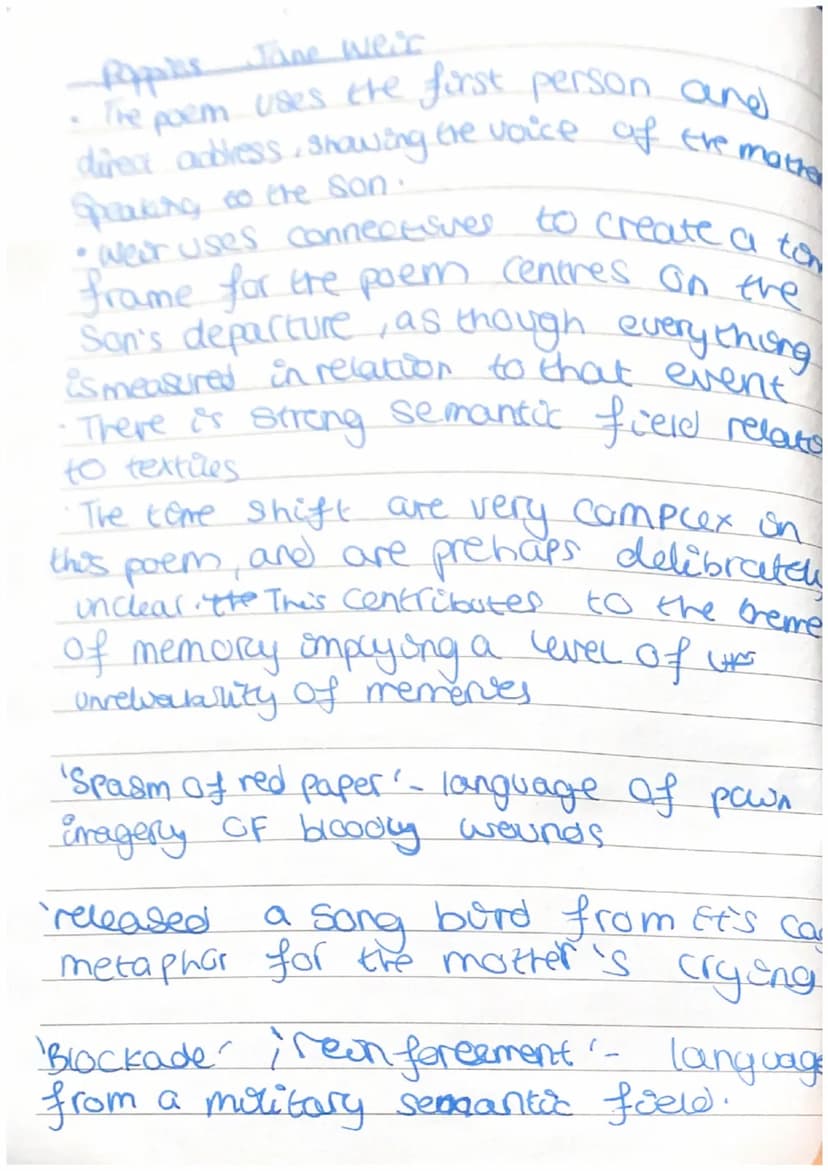 Poppies Jane Weir
• The poem uses the first person and
direct address, showing the voice of the mother
Speaking to the son.
• Weir uses connectives to create a
frame for the poem centres on the
Son's departure, as though everything
is measured in relation to that event
• There is strong semantic field relate
to textiles
• The time shift are very complex in
this poem, and are prehaps delibrately
unclear. the This contributes to the theme
of memory implying a level of
unreliability of memories
'Spasm of red paper' - language of pain
imagery OF bloody wounds
'released a song bird from it's cag
metaphor for the mother's crying
'Blockade' 'reinforcement' - language
from a military semantic field.